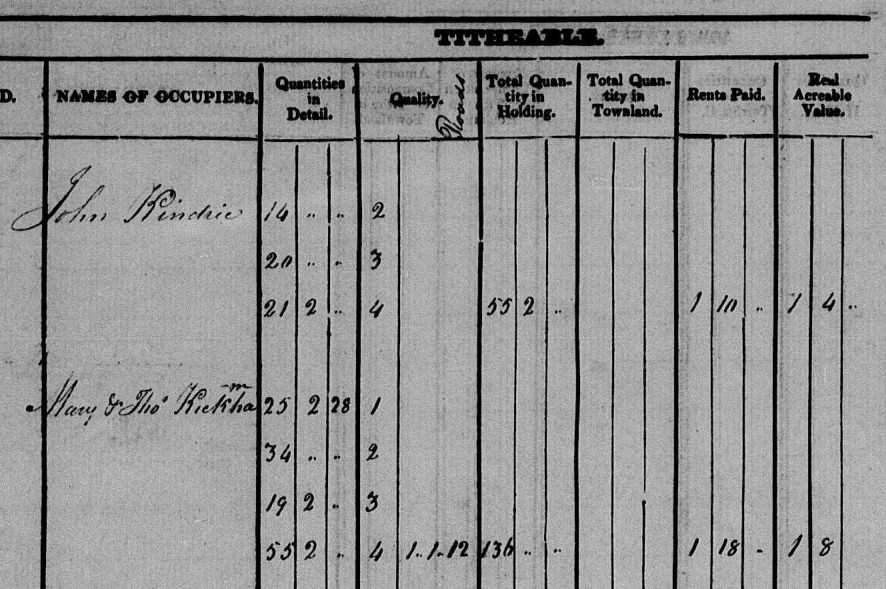 TITHEABLE.
D. NAMES OF OCCUPIERS. Quantities in Detail. Quality. Roads Total Quantity in Holding. Total Quantity in Townland. Rents Paid. Real Acreable Value.
John Kindric 14 .. .. 2
20 .. .. 3
21 2 .. 4 55 2 .. 1 10 .. 1 4 ..
Mary & Thos Kickham 25 2 28 1
34 .. .. 2
19 2 .. 3
55 2 .. 4 1..1..12 136 .. .. 1 18 .. 1 8